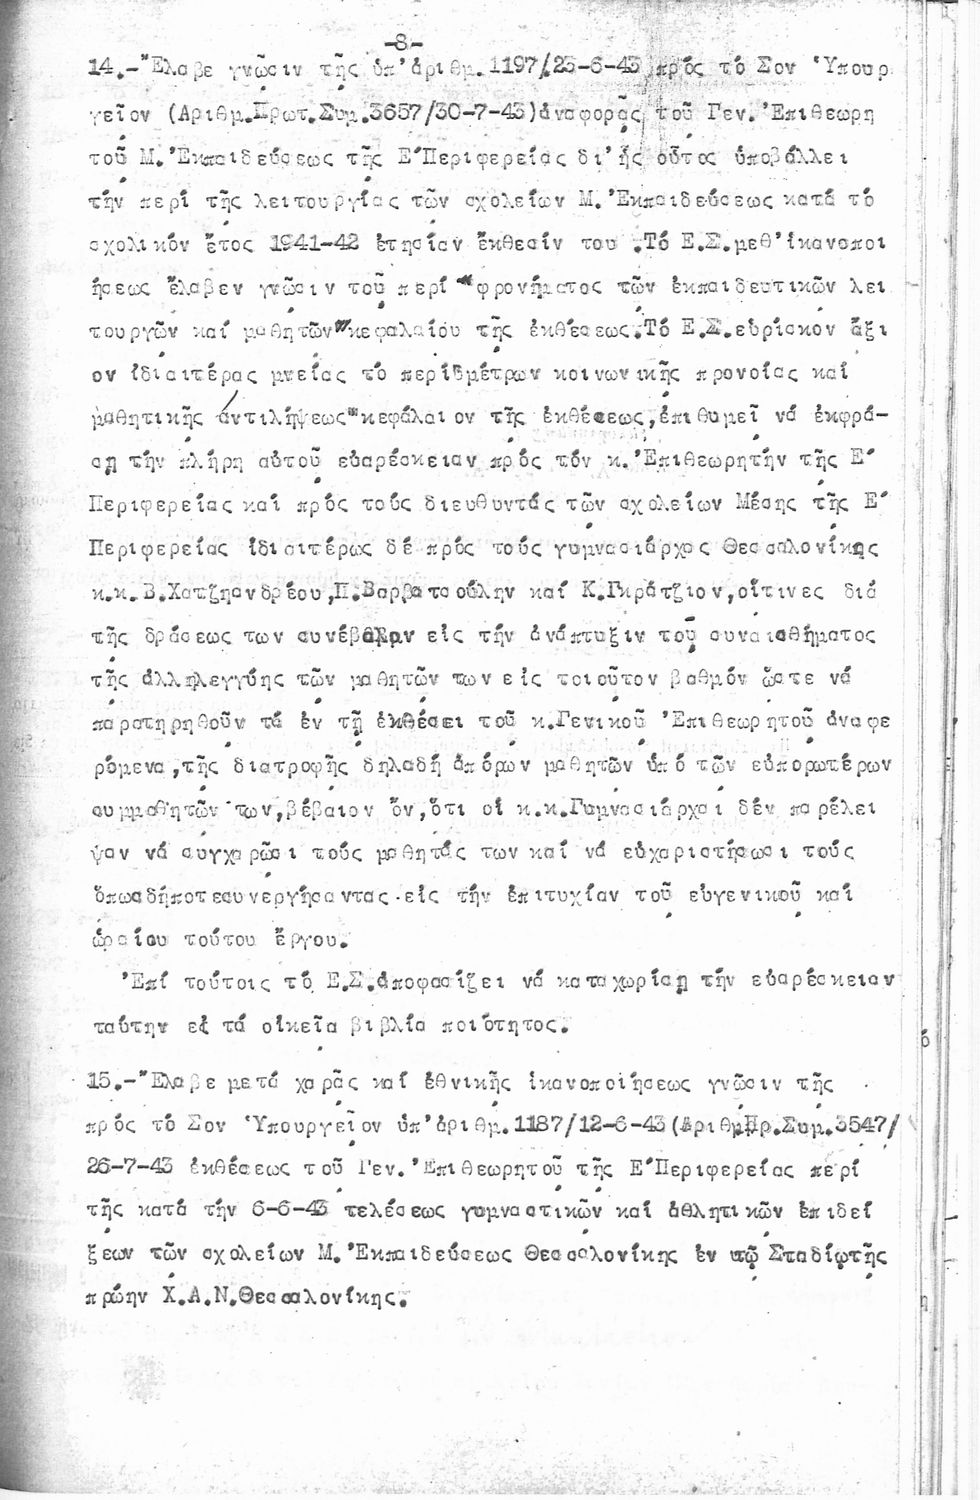 -8-
14.-Ἔλαβε γνῶσιν τῆς ὑπ'ἀριθμ.1197/23-6-43 πρός τό Σον Ὑπουρ
γεῖον (Ἀριθμ.Πρωτ.Συμ.3657/30-7-43)ἀναφορᾶς τοῦ Γεν.Ἐπιθεωρη
τοῦ Μ.Ἐκπαιδεύσεως τῆς Ε'Περιφερείας δι'ἧς οὗτος ὑποβάλλει
τήν περί τῆς λειτουργίας τῶν σχολείων Μ.Ἐκπαιδεύσεως κατά τό
σχολικόν ἔτος 1941-42 ἐτησίαν ἔκθεσίν του .Τό Ε.Σ.μεθ'ἱκανοποι
ήσεως ἔλαβεν γνῶσιν τοῦ περί "φρονήματος τῶν ἐκπαιδευτικῶν λει
τουργῶν καί μαθητῶν"κεφαλαίου τῆς ἐκθέσεως.Τό Ε.Σ.εὑρίσκον ἄξι
ον ἰδιαιτέρας μνείας τό περί"μέτρων κοινωνικῆς προνοίας καί
μαθητικῆς ἀντιλήψεως"κεφάλαιον τῆς ἐκθέσεως,ἐπιθυμεῖ νά ἐκφρά-
σῃ τήν πλήρη αὐτοῦ εὐαρέσκειαν πρός τόν κ.Ἐπιθεωρητήν τῆς Ε'
Περιφερείας καί πρός τούς διευθυντάς τῶν σχολείων Μέσης τῆς Ε'
Περιφερείας ἰδιαιτέρως δέ πρός τούς γυμνασιάρχας Θεσσαλονίκης
κ.κ.Β.Χατζηανδρέου,Π.Βαρβατσούλην καί Κ.Γκράτζιον,οἵτινες διά
τῆς δράσεως των συνέβαλον εἰς τήν ἀνάπτυξιν τοῦ συναισθήματος
τῆς ἀλληλεγγύης τῶν μαθητῶν των εἰς τοιοῦτον βαθμόν ὥστε νά
παρατηρηθοῦν τά ἐν τῇ ἐκθέσει τοῦ κ.Γενικοῦ Ἐπιθεωρητοῦ ἀναφε
ρόμενα,τῆς διατροφῆς δηλαδή ἀπόρων μαθητῶν ὑπό τῶν εὐπορωτέρων
συμμαθητῶν των,βέβαιον ὄν,ὅτι οἱ κ.κ.Γυμνασιάρχαι δέν παρέλει
ψαν νά συγχαρῶσι τούς μαθητάς των καί νά εὐχαριστήσωσι τούς
ὁπωσδήποτεσυνεργήσαντας εἰς τήν ἐπιτυχίαν τοῦ εὐγενικοῦ καί
ὡραίου τούτου ἔργου.
Ἐπί τούτοις τό Ε.Σ.ἀποφασίζει νά καταχωρίσῃ τήν εὐαρέσκειαν
ταύτην εἰ τά οἰκεῖα βιβλία ποιότητος.
15.-Ἔλαβε μετά χαρᾶς καί ἐθνικῆς ἱκανοποιήσεως γνῶσιν τῆς
πρός τό Σον Ὑπουργεῖον ὑπ'ἀριθμ.1187/12-6-43(Ἀριθμ.Πρ.Συμ.3547/
26-7-43 ἐκθέσεως τοῦ Γεν.Ἐπιθεωρητοῦ τῆς Ε'Περιφερείας περί
τῆς κατά τήν 6-6-43 τελέσεως γυμναστικῶν καί ἀθλητικῶν ἐπιδεί
ξεων τῶν σχολείων Μ.Ἐκπαιδεύσεως Θεσσαλονίκης ἐν τῷ Σταδίῳτῆς
πρώην Χ.Α.Ν.Θεσσαλονίκης.